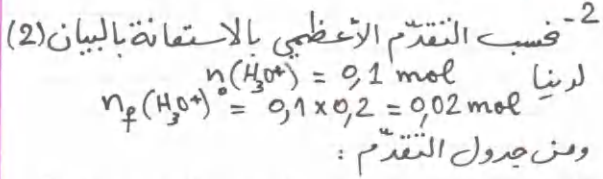 2- نحسب التقدّم الأعظمي بالاستعانة بالبيان (2)
لدينا n(H3O+)° = 0,1 mol
nf(H3O+) = 0,1 x 0,2 = 0,02 mol
ومن جدول التقدّم :